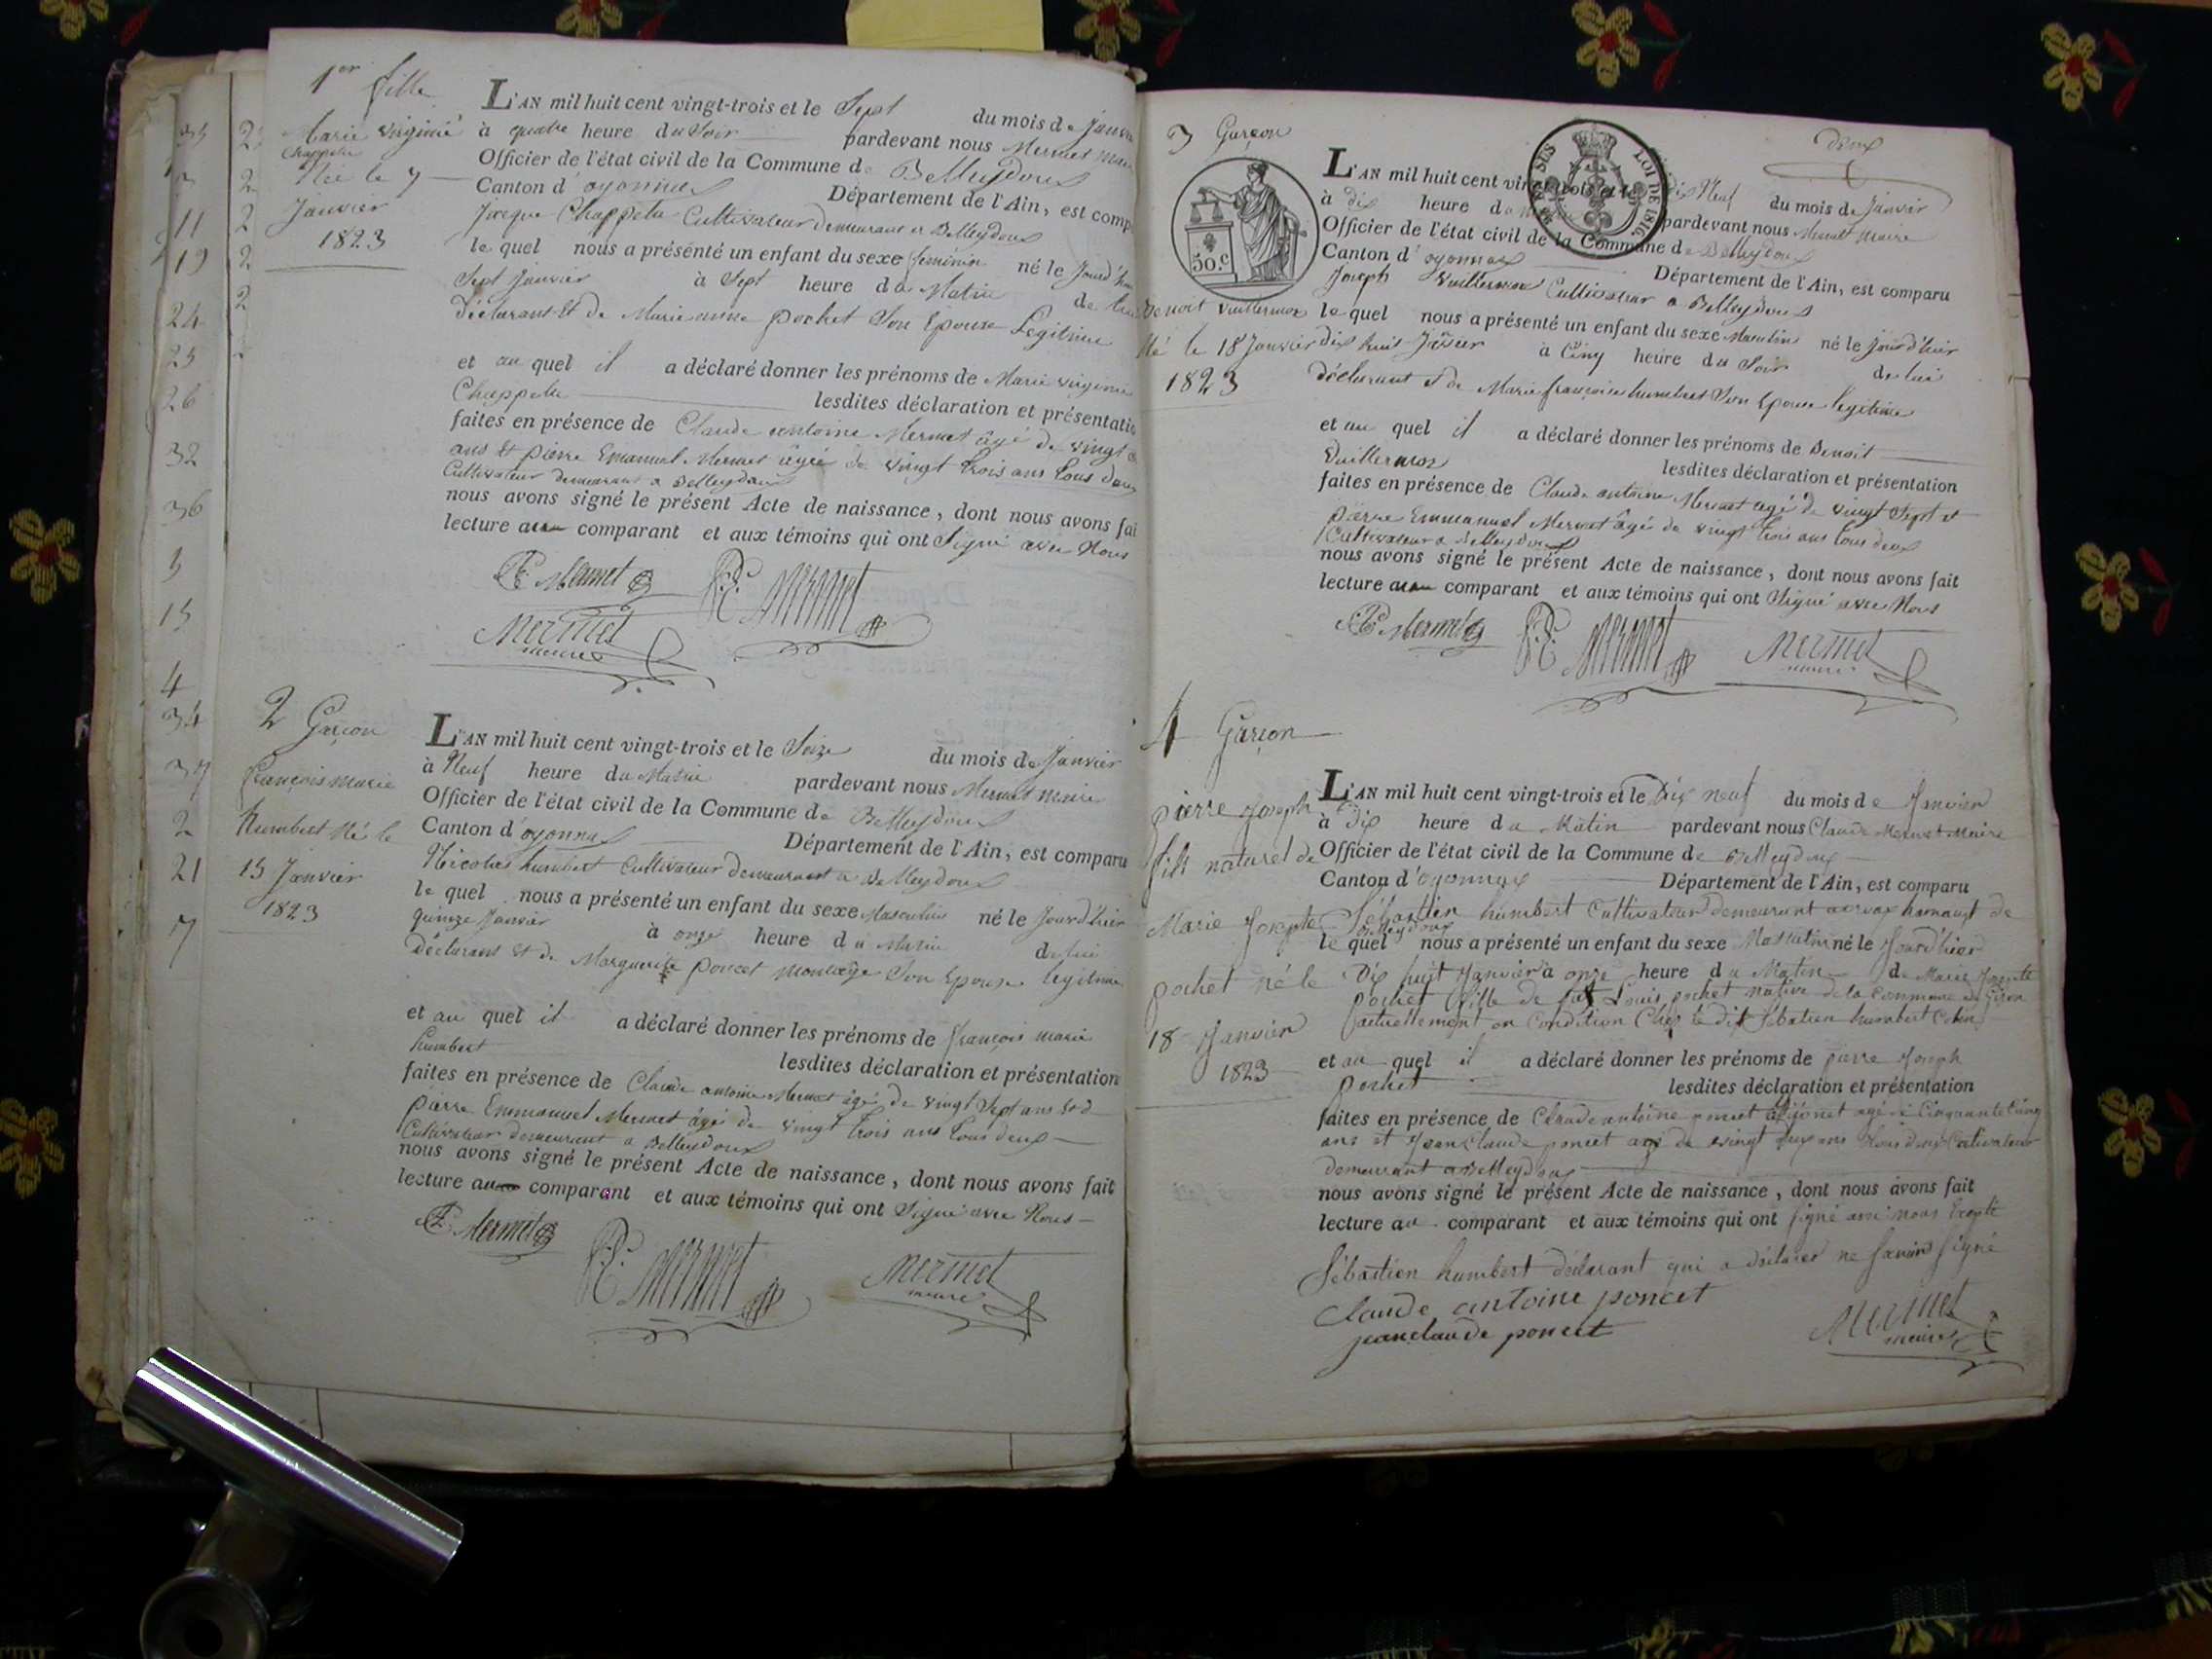 1er fille
Marie virginie
Chappelu
Née le 7
Janvier
1823
L'AN mil huit cent vingt-trois et le Sept du mois de Janvi
à quatre heure du Soir pardevant nous Mermet Mai
Officier de l'état civil de la Commune de Belleydoux
Canton d'oyonnax Département de l'Ain, est comp
Chappelu Cultivateur demeurant a Belleydoux
le quel nous a présenté un enfant du sexe féminin né le Jourd'hui
Sept Janvier à Sept heure du Matin de lui
déclarant et de Marie anne pochet Son Epouse Legitime
et au quel il a déclaré donner les prénoms de Marie virginie
Chappelu lesdites déclaration et présentatio
faites en présence de Claude antoine Mermet âgé de vingt
ans et pierre Emanuel Mermet âgée de vingt trois ans tous deux
Cultivateur demeurant a Belleydoux
nous avons signé le présent Acte de naissance, dont nous avons fai
lecture au comparant et aux témoins qui ont Signé avec Nous
Mermet
P.E. Mermet
Mermet
maire
2 Garçon
françois marie
humbert Né le
15 Janvier
1823
L'AN mil huit cent vingt-trois et le Seize du mois de Janvier
à Neuf heure du Matin pardevant nous Mermet Maire
Officier de l'état civil de la Commune de Belleydoux
Canton d'oyonnax Département de l'Ain, est comparu
Nicolas humbert Cultivateur demeurant a Belleydoux
le quel nous a présenté un enfant du sexe Masculin né le Jourd'hier
quinze Janvier à onze heure du Matin de lui
déclarant et de Marguerite poncet Son Epouse legitime
et au quel il a déclaré donner les prénoms de françois marie
humbert lesdites déclaration et présentation
faites en présence de Claude antoine Mermet âgé de vingt Sept ans et d
pierre Emmanuel Mermet âgé de vingt trois ans tous deux
Cultivateur demeurant a Belleydoux
nous avons signé le présent Acte de naissance, dont nous avons fait
lecture au comparant et aux témoins qui ont Signé avec Nous
Mermet
P.E. Mermet
Mermet
maire
deux
3 Garçon
50.c
LOI DE 1816
Benoit vuillermoz
Né le 18 Janvier
1823
L'AN mil huit cent vingt-trois et le dix Neuf du mois de Janvier
à dix heure du pardevant nous Mermet Maire
Officier de l'état civil de la Commune de Belleydoux
Canton d'oyonnax Département de l'Ain, est comparu
Joseph vuillermoz Cultivateur a Belleydoux
le quel nous a présenté un enfant du sexe Masculin né le Jourd'hier
dix huit Janvier à Cinq heure du Soir de lui
déclarant et de Marie françoise humbert Son Epouse legitime
et au quel il a déclaré donner les prénoms de Benoit
Vuillermoz lesdites déclaration et présentation
faites en présence de Claude antoine Mermet âgé de vingt Sept et
pierre Emmanuel Mermet âgé de vingt trois ans tous deux
Cultivateur a Belleydoux
nous avons signé le présent Acte de naissance, dont nous avons fait
lecture au comparant et aux témoins qui ont Signé avec Nous
Mermet
P.E. Mermet
Mermet
maire
4 Garçon
pierre Joseph
fils naturel de
Marie Josephte
pochet né le
18 Janvier
1823
L'AN mil huit cent vingt-trois et le Dix neuf du mois de Janvier
à Dix heure du Matin pardevant nous Claude Mermet Maire
Officier de l'état civil de la Commune de Belleydoux
Canton d'oyonnax Département de l'Ain, est comparu
Sébastien humbert Cultivateur demeurant hamaux de
Belleydoux
le quel nous a présenté un enfant du sexe Masculin né le Jourd'hier
Dix huit Janvier à onze heure du Matin de Marie Josephte
pochet fille de Louis pochet native de la Commune de Giron
actuellement en Condition Chez le dit Sébastien humbert
et au quel il a déclaré donner les prénoms de pierre Joseph
pochet lesdites déclaration et présentation
faites en présence de Claude antoine poncet agé de Cinquante Cinq
ans et Jean Claude poncet agé de vingt ans tous deux Cultivateur
demeurant a Belleydoux
nous avons signé le présent Acte de naissance, dont nous avons fait
lecture au comparant et aux témoins qui ont signé avec nous Excepté
Sébastien humbert déclarant qui a déclarer ne Savoir signé
claude antoine poncet
jean claude poncet
Mermet
maire
11
19
24
25
26
32
36
5
15
4
34
37
2
21
7